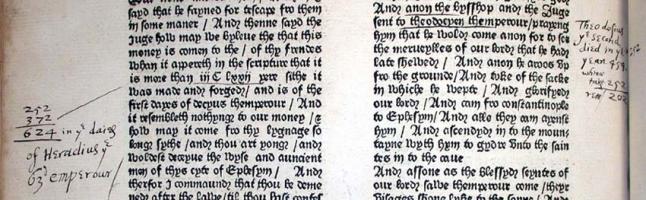 said that he fayned for tescape fro them
in some maner / And thenne sayd the
Juge how may we byleue the that this
money is comen to the / of thy frendes
whan it appereth in the scripture that it
is more than iii C lxxii yere sithe it
was made and forged / and is of the
first dayes of decyus themperour / And
it resembleth nothynge to our money / &
how may it come fro thy lygnage so
longe sythe / and thou art yonge / and
woldest deceyue the wyse and auncient
men of thys cyte of Ephesym / And
therfor I commaunde that thou be deme
ned after the lawe / til thou hast confes
252
372
624 in ye daies
of Heraclius ye
63d emperour /
And anon the bysshop and the Juge
sent to theodocyen themperour / prayeng
hym that he wolde come anon for to see
the merueylles of our lord that he had
late shewed / And anon he aroos vp
fro the grounde / And toke of the sacke
in whiche he wepte / And gloryfyed
our lord / And cam fro constantinople
to Ephesym / And alle they cam ayenst
hym / And ascended in to the moun-
tayne wyth hym to gydre vnto the sain
tes in to the caue
And assone as the blessyd seyntes of
our lord sawe themperour come / theyr
visages shone lyke to the sonne /
Theodosius
ye second
died in ye
year 450.
whence
take 252
rest 202